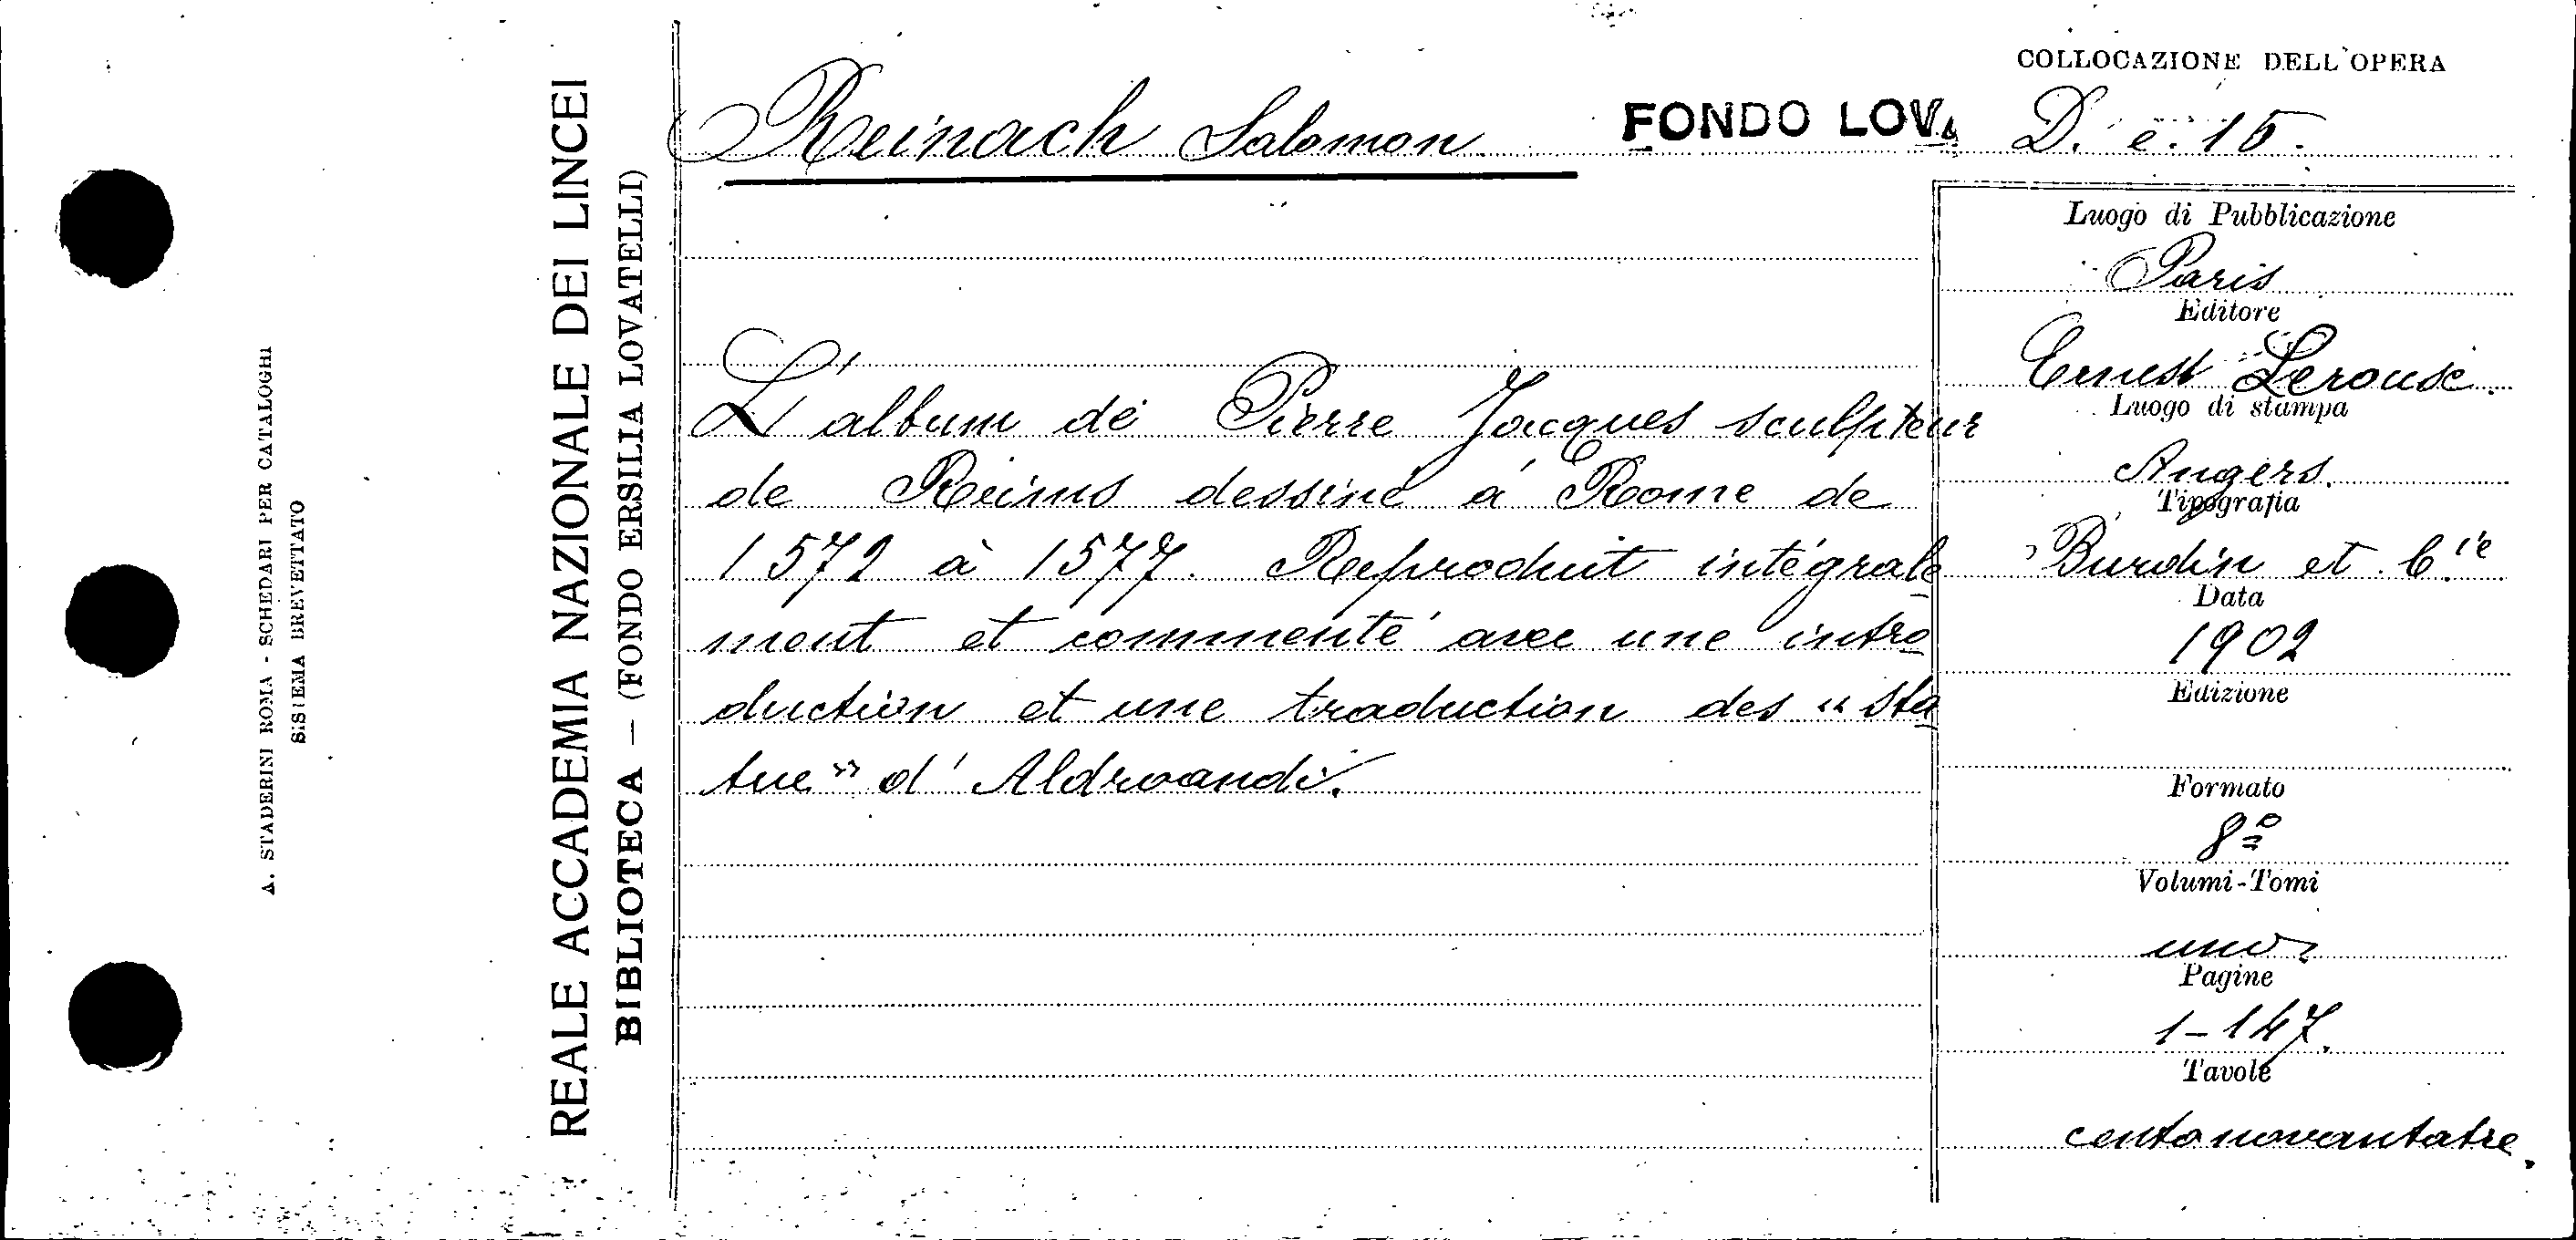 A. STADERINI ROMA - SCHEDARI PER CATALOGHI
SISTEMA BREVETTATO
REALE ACCADEMIA NAZIONALE DEI LINCEI
BIBLIOTECA — (FONDO ERSILIA LOVATELLI)
COLLOCAZIONE DELL'OPERA
Reinach Salomon
FONDO LOV. D. e. 15.
Luogo di Pubblicazione
Paris
Editore
Ernest Leroux.
Luogo di stampa
Angers.
Tipografia
Burdin et C.ie
Data
1902
Edizione
Formato
8º
Volumi-Tomi
uno
Pagine
1-147.
Tavole
centonovantatre.
L'album de Pierre Jacques sculpteur
de Reims dessiné à Rome de
1572 à 1577. Reproduit intégrale
ment et commenté avec une intro
duction et une traduction des "Sta
tue" d'Aldroandi.